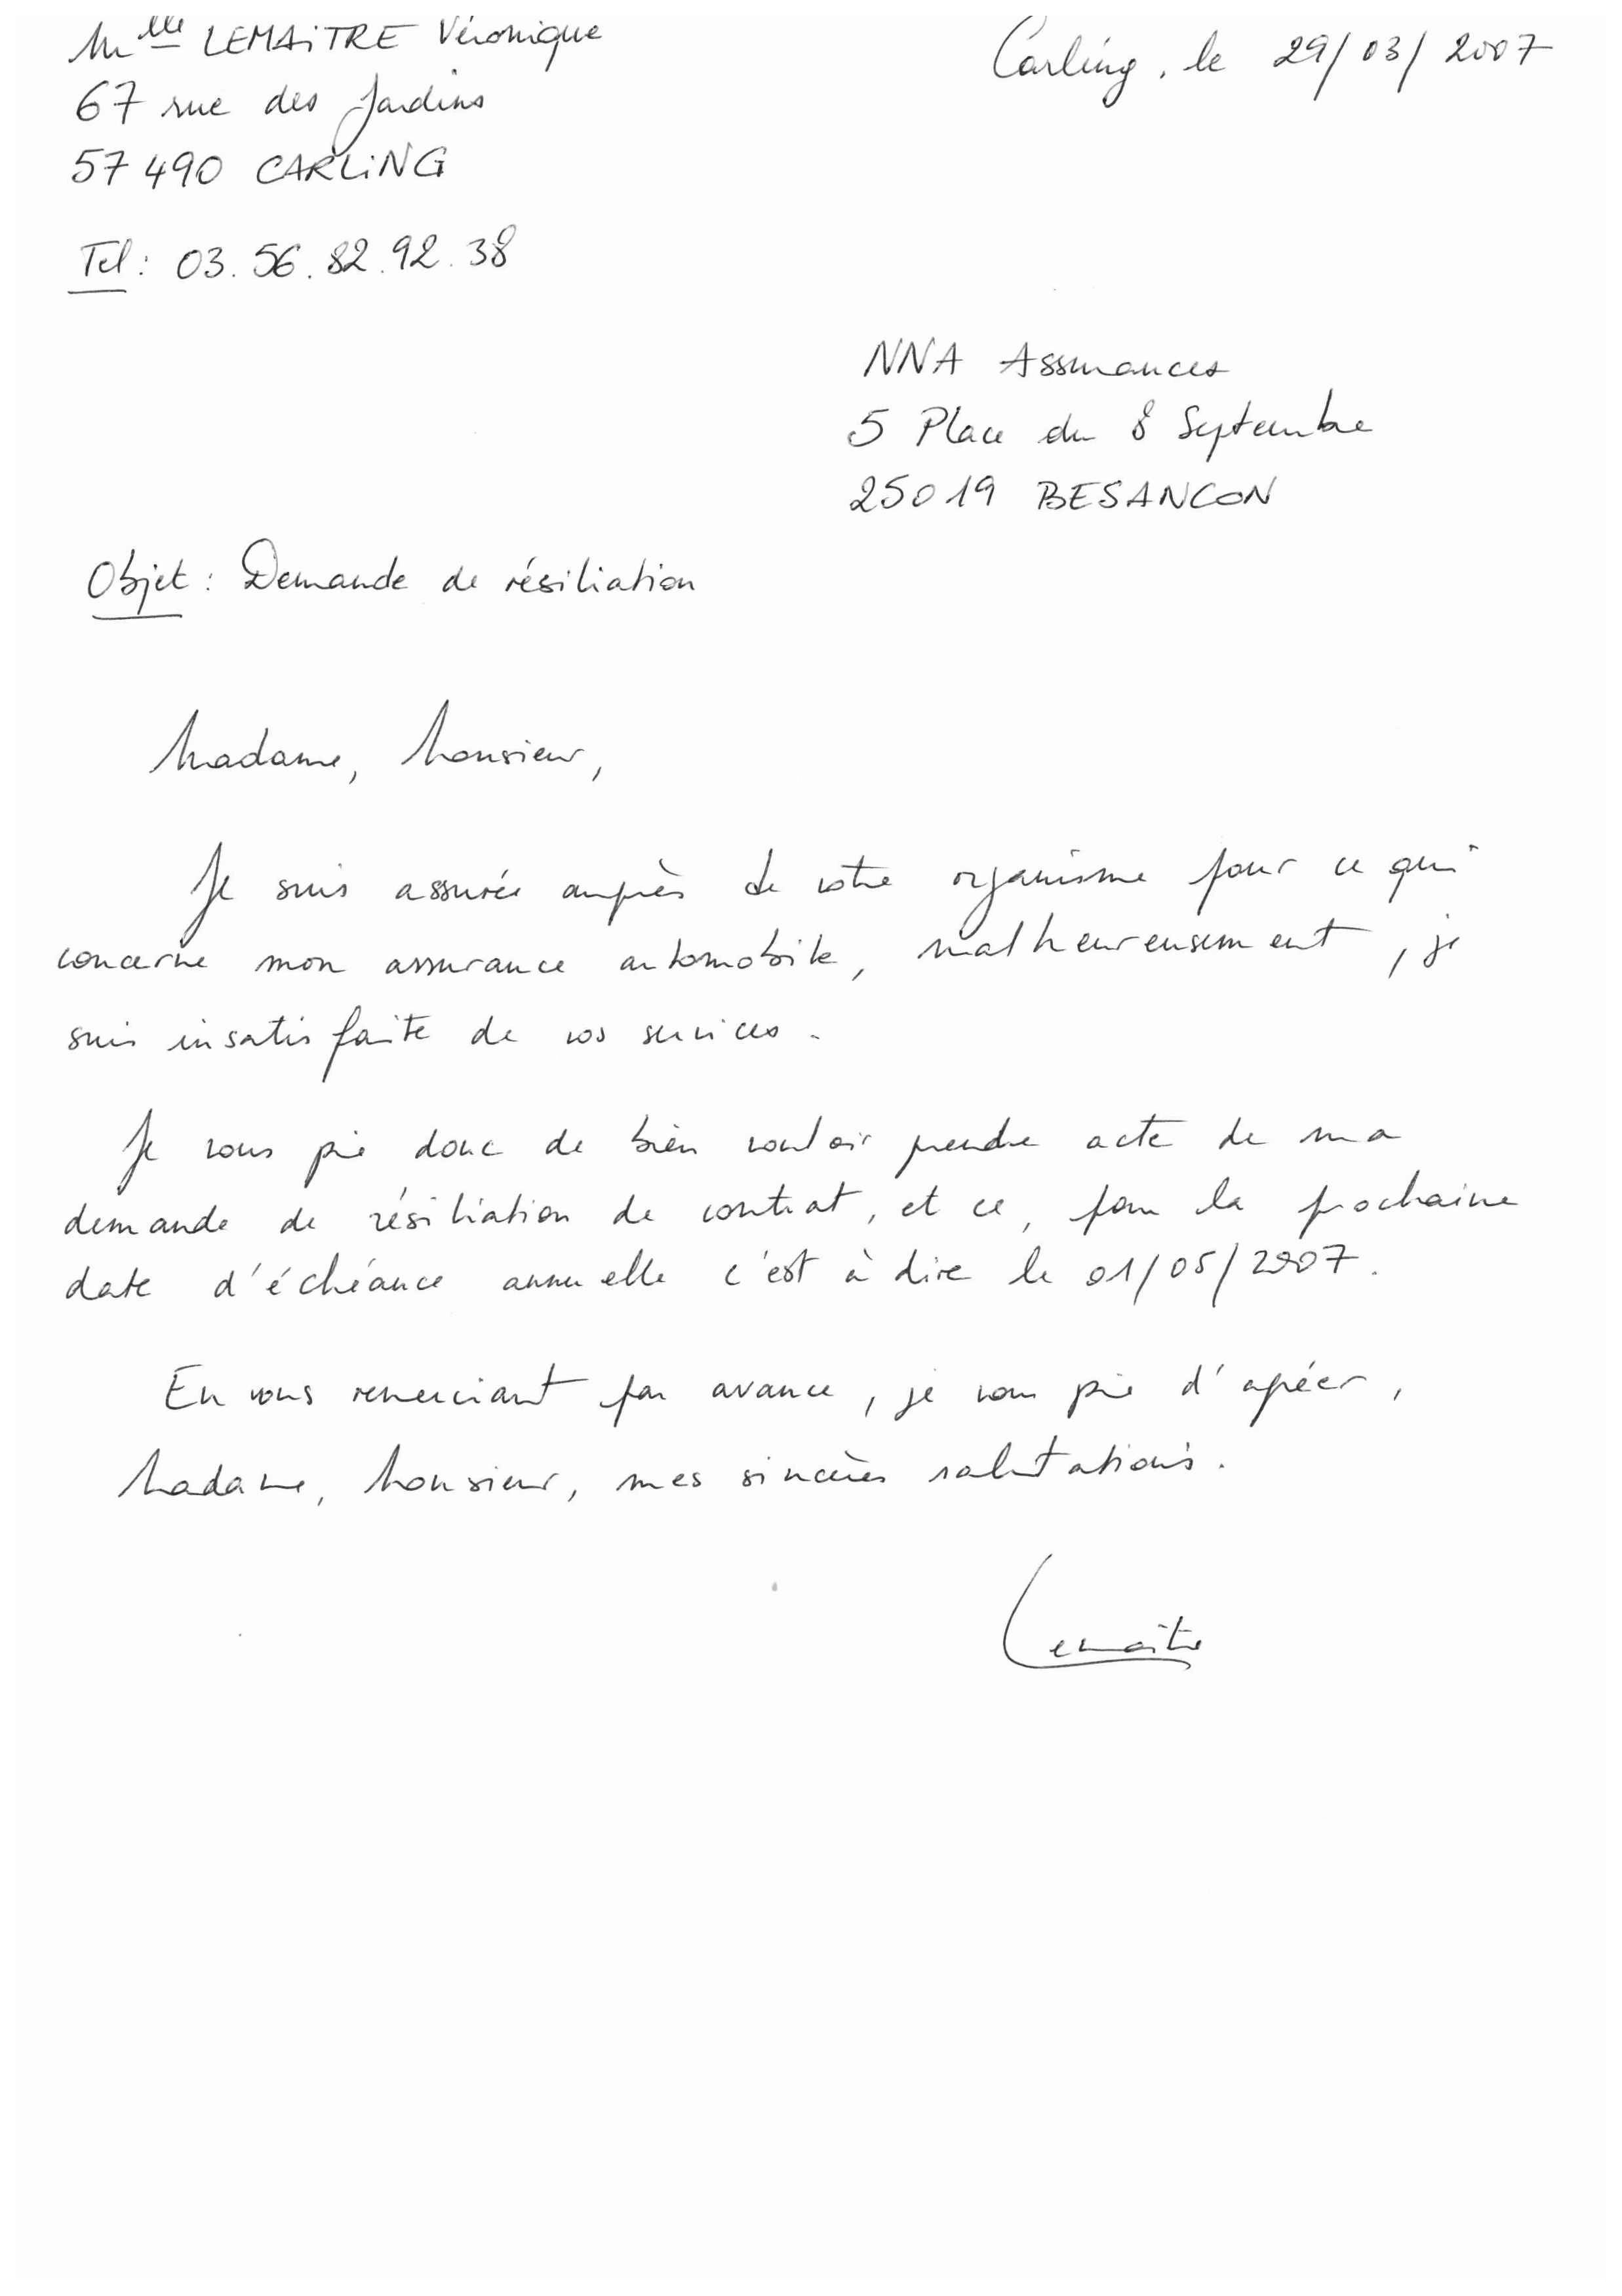 Mlle LEMAiTRE Véronique
Carling, le 29/03/2007
67 rue des Jardins
57490 CARLiNG
Tel : 03.56.82.92.38
NNA Assurances
5 Place du 8 Septembre
25019 BESANCON
Objet : Demande de résiliation
Madame, Monsieur,
Je suis assurée auprès de votre organisme pour ce qui
concerne mon assurance automobile, malheureusement, je
suis insatisfaite de vos services.
Je vous prie donc de bien vouloir prendre acte de ma
demande de résiliation de contrat, et ce, pour la prochaine
date d'échéance annuelle c'est à dire le 01/05/2007.
En vous remerciant par avance, je vous prie d'agréer,
Madame, Monsieur, mes sincères salutations.
Lemaître